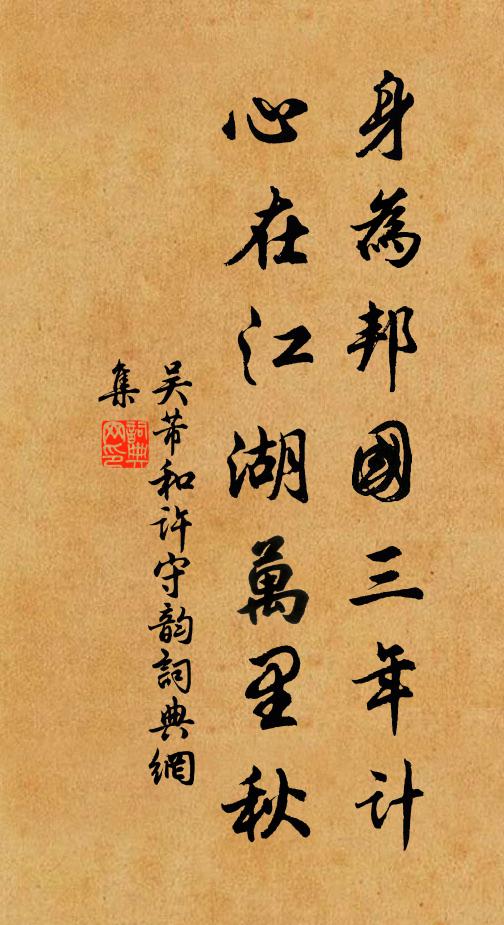 身為邦國三年计
心在江湖萬里秋
吴芾和许守韵詞典網
集
詞典網印